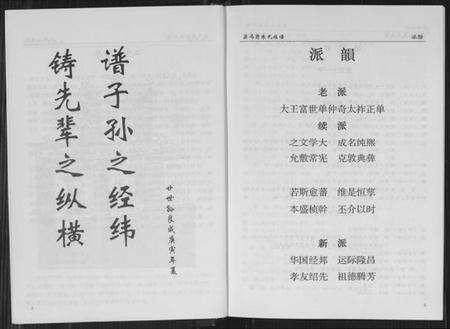 谱子孙之经纬
铸先辈之纵横
廿世孙良成庚寅年夏
派韻
老派
大王富世单仲奇太祚正单
续派
之文学大 成名纯熙
允敷常宪 克敦典彝
若斯愈蕃 维是恒孳
本盛桢幹 丕介以时
新派
华国经邦 运际隆昌
孝友绍先 祖德腾芳